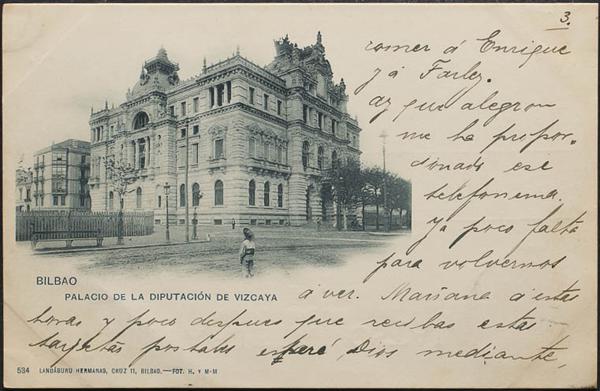 3.
comer á Enrique
y á Farley.
ay que alegron
me ha propor-
cionado ese
telefonema.
ya poco falta
para volvernos
BILBAO
PALACIO DE LA DIPUTACIÓN DE VIZCAYA
á ver. Mañana á estas
horas y poco despues que recibas estas
tarjetas postales esperé Dios mediante,
534 LANDÁBURU HERMANAS, CRUZ 11, BILBAO.—FOT. H. Y M-M